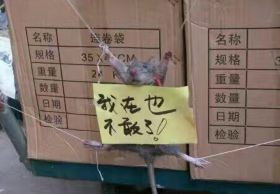 名称 卷袋
规格 35
重量 2
数量
日期
检验
名称
规格 3
重量
数量
日期
检验
我在也
不敢了!